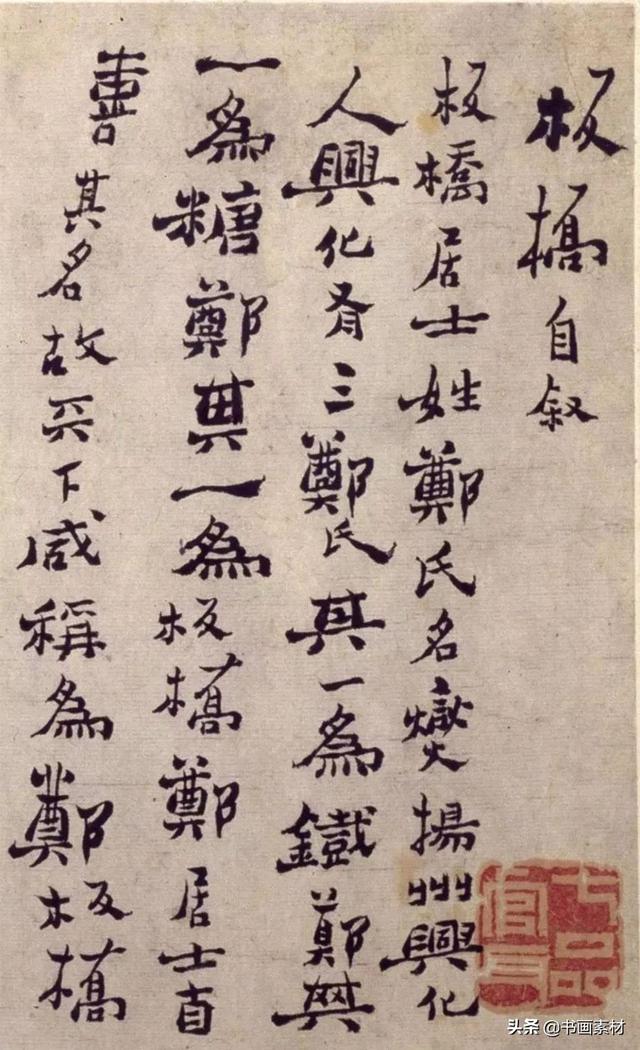 板橋自叙
板橋居士姓鄭氏名燮揚州興化
人興化有三鄭氏其一為鐵鄭其
一為糖鄭其一為板橋鄭居士自
喜其名故天下咸稱為鄭板橋
七品官耳
头条 @书画素材